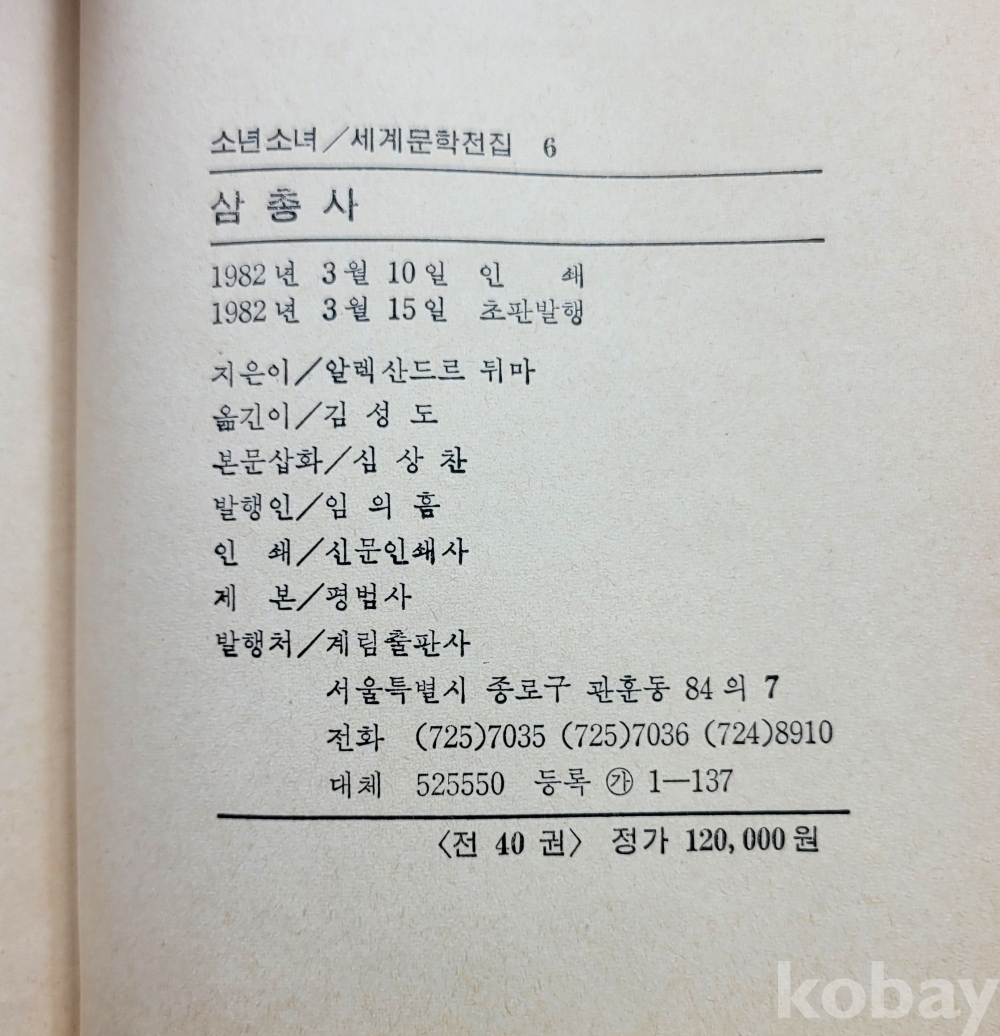 소년소녀/세계문학전집 6
삼 총 사
1982년 3월 10일 인 쇄
1982년 3월 15일 초판발행
지은이/알렉산드르 뒤마
옮긴이/김 성 도
본문삽화/심 상 찬
발행인/임 의 흠
인 쇄/신문인쇄사
제 본/평범사
발행처/계림출판사
서울특별시 종로구 관훈동 84의 7
전화 (725)7035 (725)7036 (724)8910
대체 525550 등록 ㉮ 1—137
〈전 40 권〉 정가 120,000원
kobay